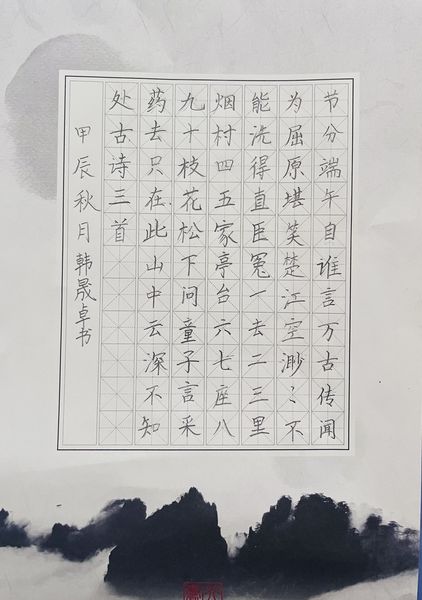 节分端午自谁言万古传闻
为屈原堪笑楚江空渺〻不
能洗得直臣冤一去二三里
烟村四五家亭台六七座八
九十枝花松下问童子言采
药去只在此山中云深不知
处古诗三首
甲辰秋月韩晟卓书